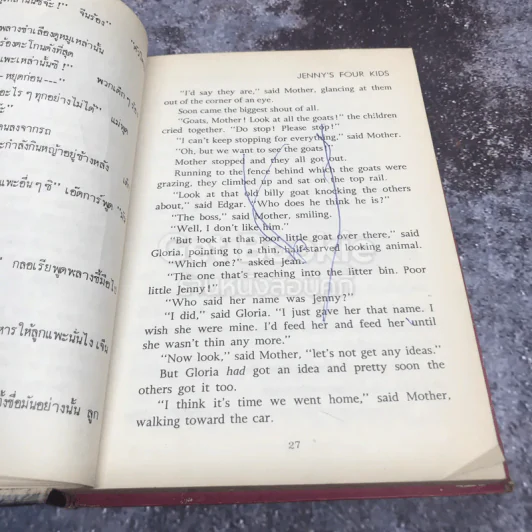 ซิจ๊ะ !" จีนร้อง
พลางชำเลืองดูหมู่เหล่านั้น
ร้องตะโกนดังที่สุด
แพะเหล่านั้นซิ !"
หยุดก่อน---" พวกเด็ก ๆ
อะไร ๆ ทุกอย่างไม่ได้" แม่พูด
ลงจากรถ
กำลังกินหญ้าอยู่ข้างหลัง
แพะอื่น ๆ ซิ" เอ้ดการ์พูด
กลอเรียพูดพลางชี้มือไป
หารให้ลูกแพะนั่นไง เจน
ชื่อมันอย่างนั้น ลูก
JENNY'S FOUR KIDS
"I'd say they are," said Mother, glancing at them
out of the corner of an eye.
Soon came the biggest shout of all.
"Goats, Mother! Look at all the goats!" the children
cried together. "Do stop! Please stop!"
"I can't keep stopping for everything," said Mother.
"Oh, but we want to see the goats!"
Mother stopped and they all got out.
Running to the fence behind which the goats were
grazing, they climbed up and sat on the top rail.
"Look at that old billy goat knocking the others
about," said Edgar. "Who does he think he is?"
"The boss," said Mother, smiling.
"Well, I don't like him."
"But look at that poor little goat over there," said
Gloria, pointing to a thin, half-starved looking animal.
"Which one?" asked Jean.
"The one that's reaching into the litter bin. Poor
little Jenny!"
"Who said her name was Jenny?"
"I did," said Gloria. "I just gave her that name. I
wish she were mine. I'd feed her and feed her until
she wasn't thin any more."
"Now look," said Mother, "let's not get any ideas."
But Gloria had got an idea and pretty soon the
others got it too.
"I think it's time we went home," said Mother,
walking toward the car.
27